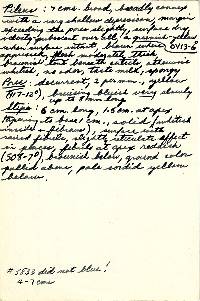 Pileus: 7 cms. broad, broadly convex
with a very shallow depression, margin
exceeding the pores slightly, surface dry
velvety pubescent over all, a ground-yellow
when surface intact, brown when
appressed, flesh up to thick
brownish tint beneath cuticle, otherwise
whitish, no odor, taste mild, spongy
Pores: descendent, 2 per mm, yellow
bruising bluish very slowly
up to 8 mm long
Stipe: 6 cm. long, 1.5 cm. at apex
tapering to base 1 cm., solid (whitish
inside & fibrous), surface with
raised fibrils, slightly reticulate effect
in places, fibrils at apex reddish
brownish below, ground color
yellow above, pale sordid yellow
below.
#5533 did not blue!
4-7 cms